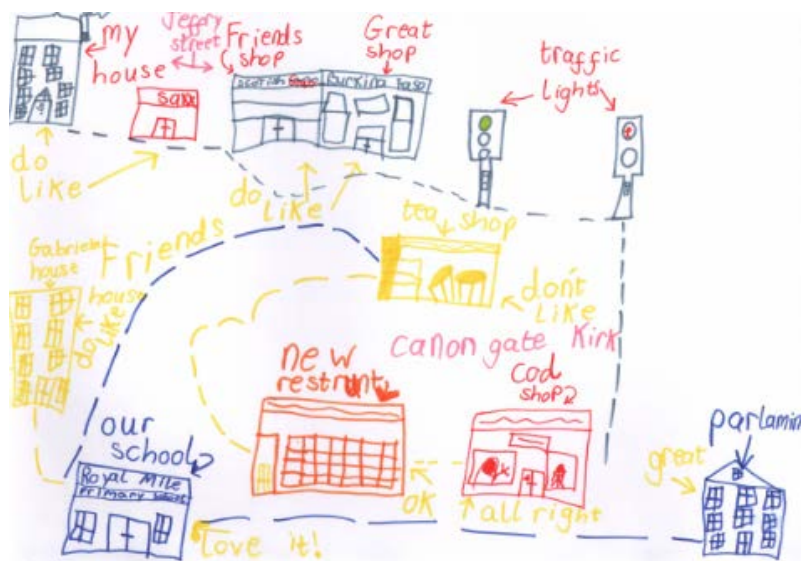 my
house
Jeffry
street
Friends
shop
Great
shop
traffic
lights
Burkina Faso
do
like
do
like
tea shop
don't
like
Gabriels
house
Friends
house
do
like
canon gate Kirk
new
restrunt
cod
shop
our
school
Royal Mile
Primary
parlamin
great
OK
all right
love it!